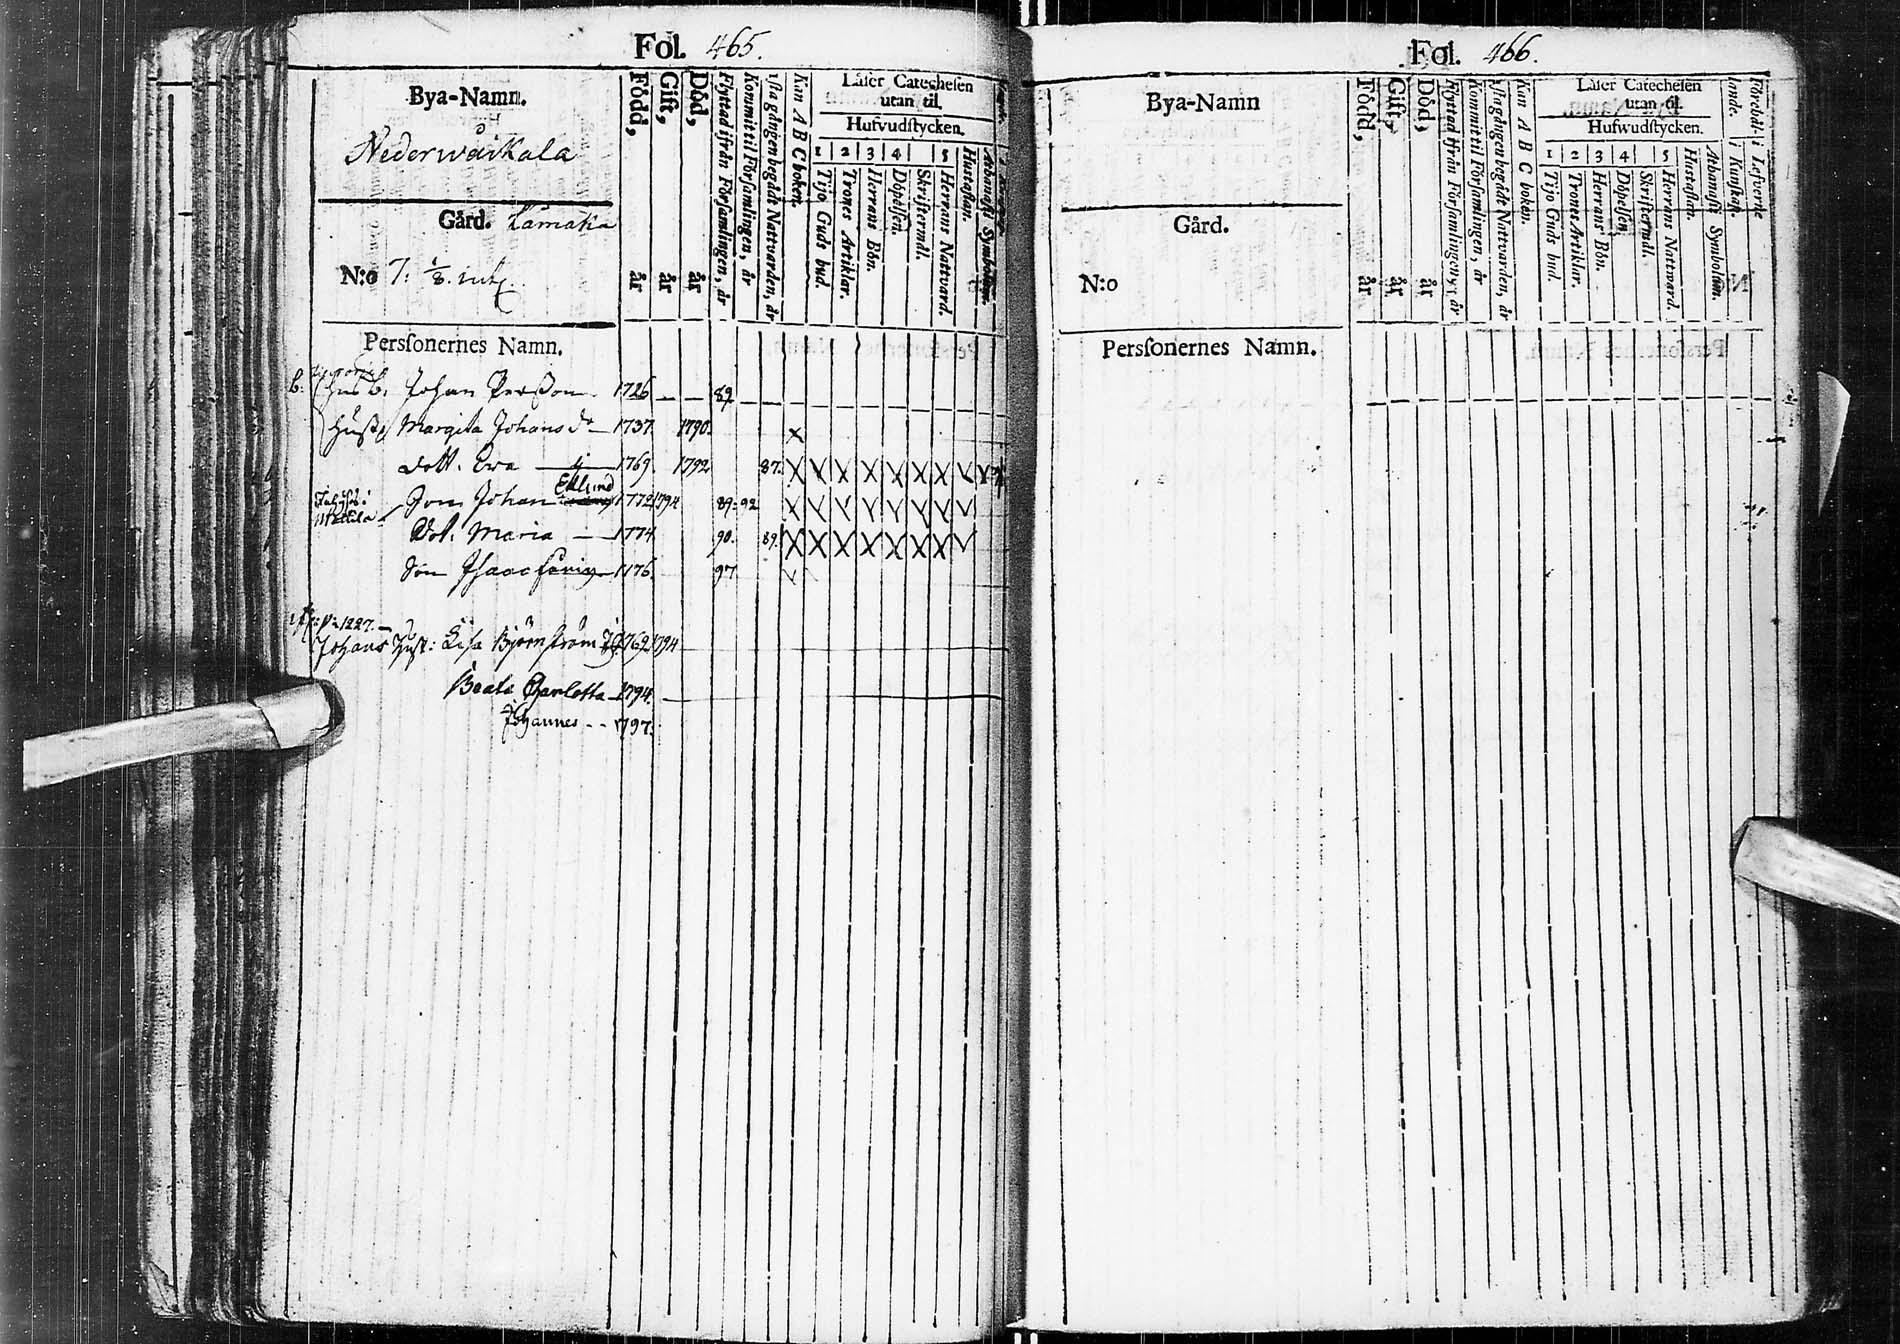 Fol. 465.
Bya-Namn.
Nederwäikala
Gård. Lamaka
N:o 7: 1/8.
Född, år
Gift, år
Död, år
Flyttad ifrån Församlingen, år
Kommit til Församlingen, år
1sta gången begådt Nattvarden, år
Kan A B C boken.
Läser Catechesen
utan til.
Hufvudstycken.
1 2 3 4 5
Tijo Guds bud.
Trones Artiklar.
Herrans Bön.
Döpelsen.
Skriftermål.
Herrans Nattvard.
Hustaflan.
Athanasii Symbolum.
Personernes Namn.
b. Husb. Johan Persson 1726 89
Hust. Margita Johans dr 1737. 1790.
Dott. Ewa 1769. 1792 87.
Son Johan Edlund 1772 1794 89-92
Dot. Maria 1774 90. 89.
Son Isaac 1776. 97
Johans Hust: Lisa Björnström 1769 1794
Beata Charlotta 1794.
Johannes - - 1797.
Fol. 466.
Bya-Namn
Gård.
N:o
Född, år
Gift, år
Död, år
Flyttad ifrån Församlingen, år
Kommit til Församlingen, år
1sta gången begådt Nattvarden, år
Kan A B C boken.
Läser Catechesen
utan til.
Hufwudstycken.
1 2 3 4 5
Tijo Guds bud.
Trones Artiklar.
Herrans Bön.
Döpelsen.
Skriftermål.
Herrans Nattvard.
Hustaflan.
Athanasii Symbolum.
Personernes Namn.